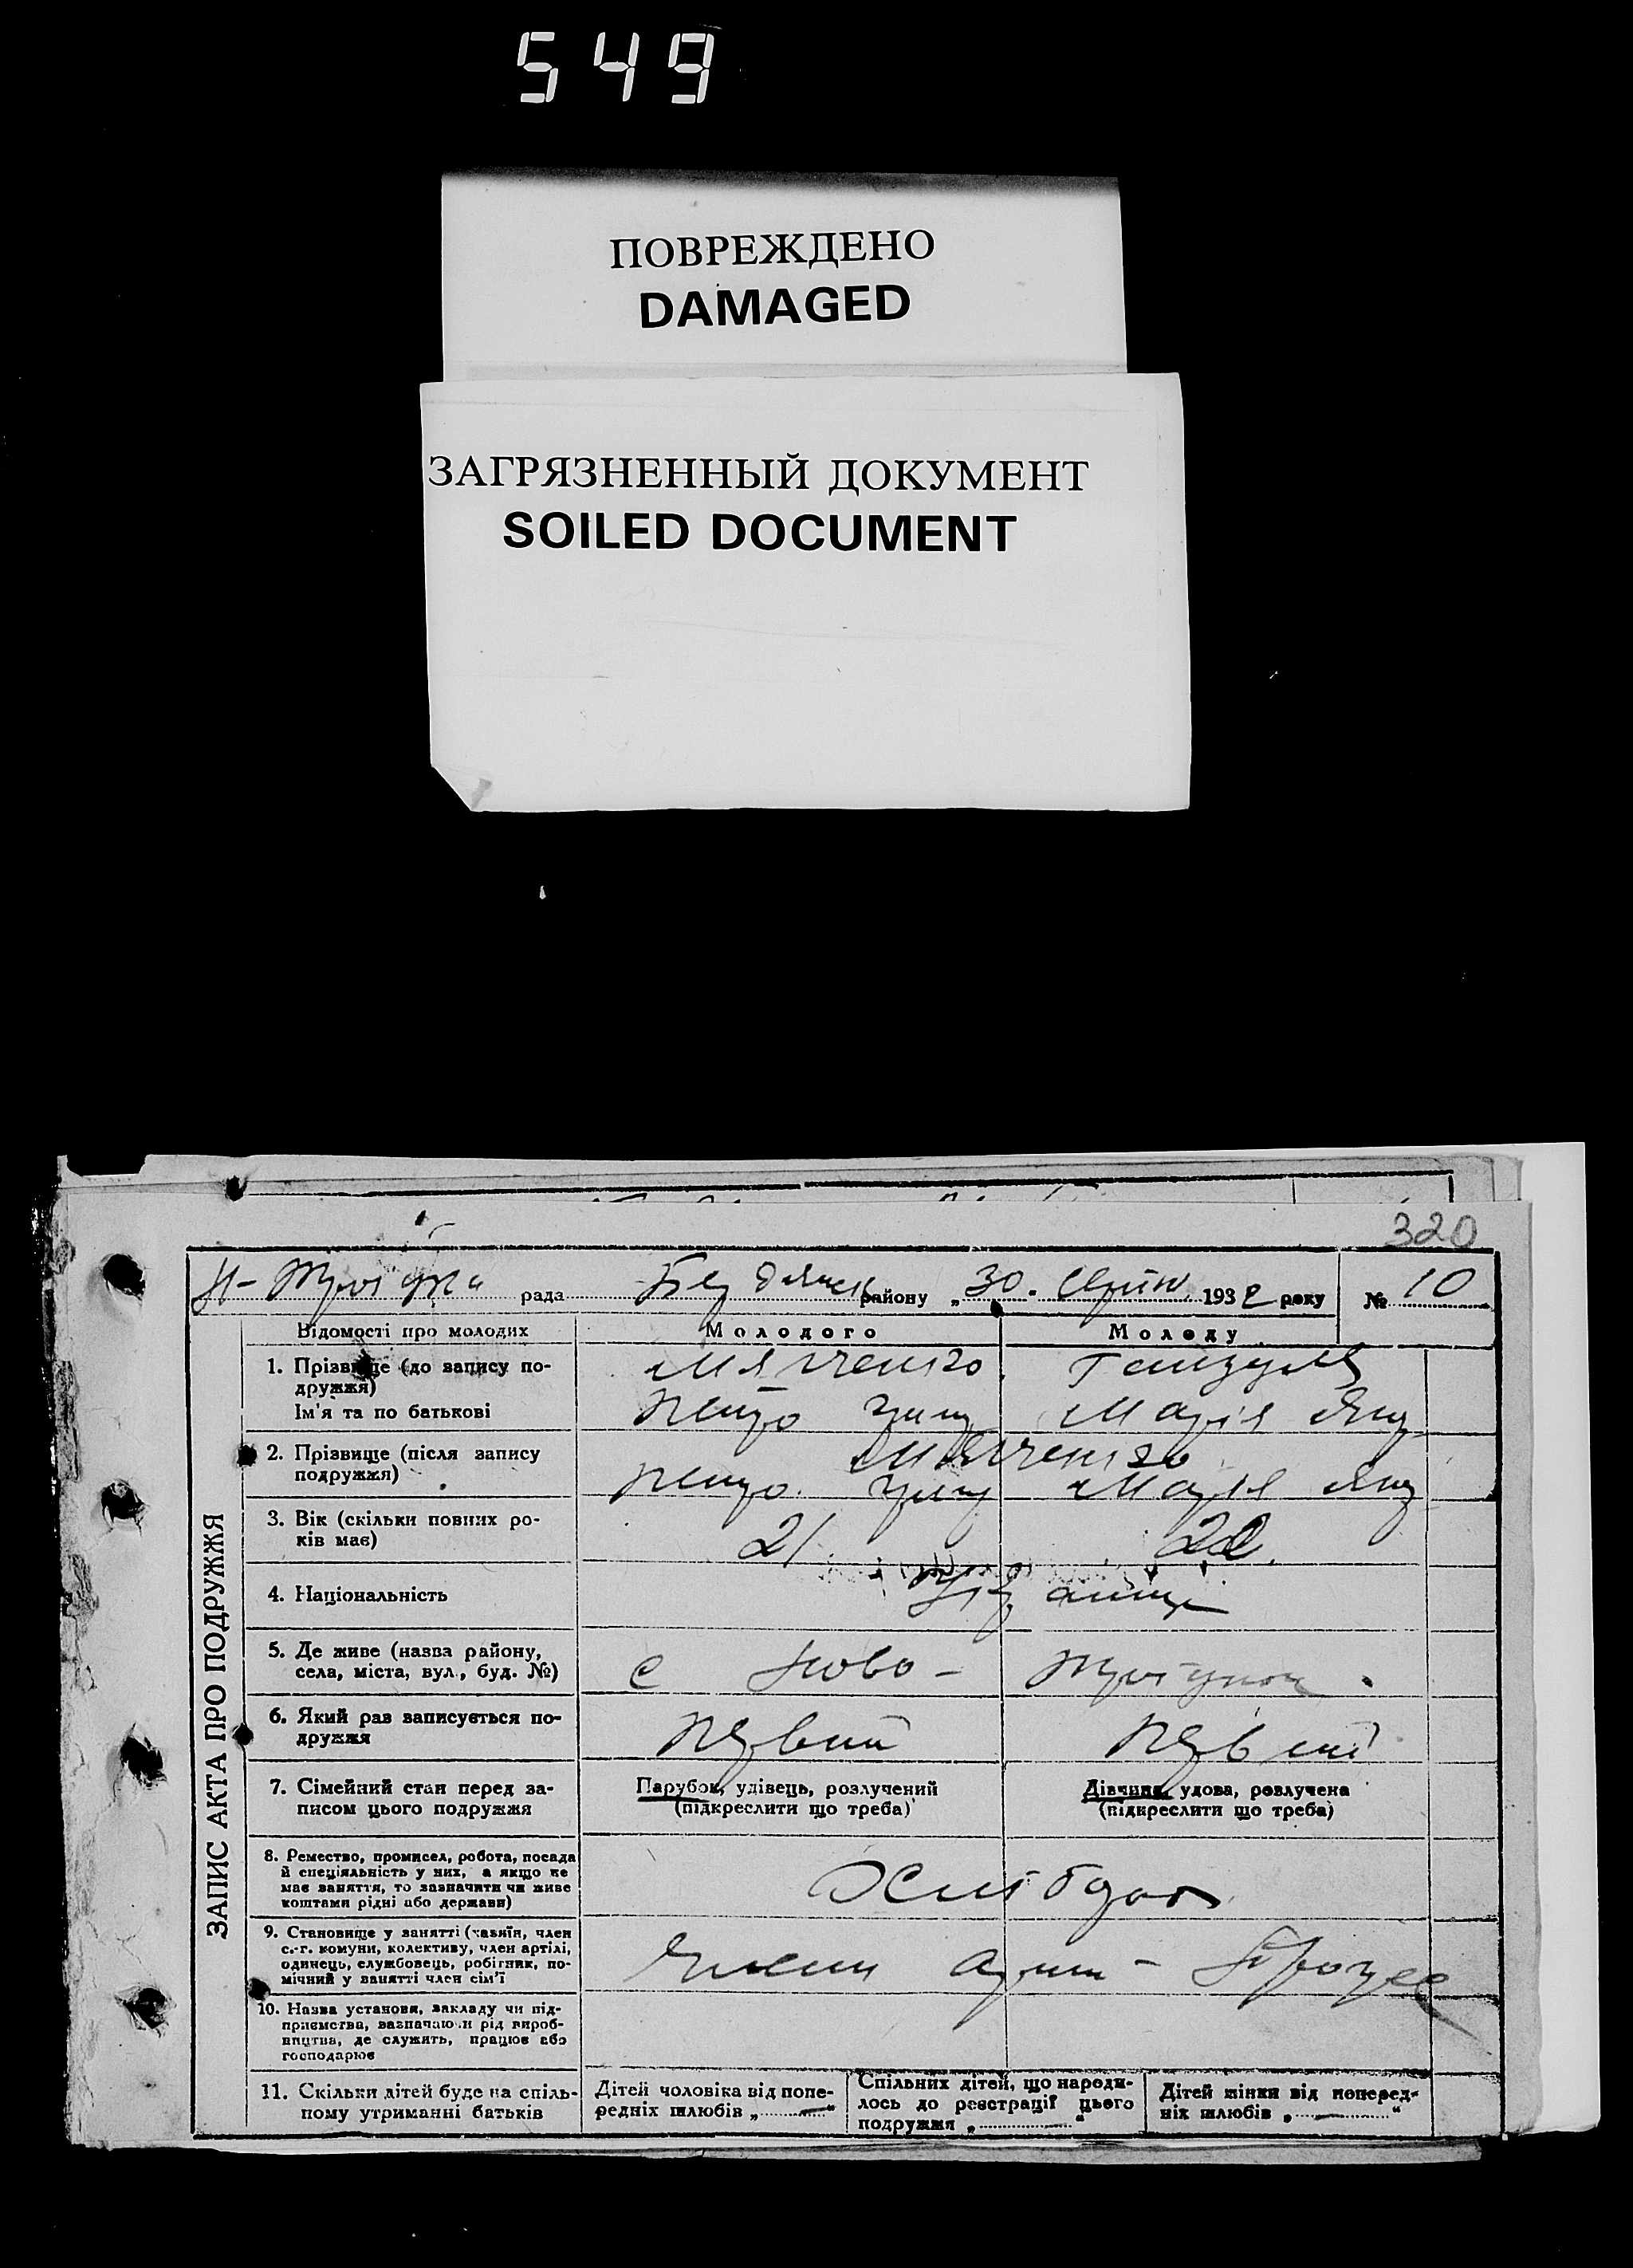 549
ПОВРЕЖДЕНО
DAMAGED
ЗАГРЯЗНЕННЫЙ ДОКУМЕНТ
SOILED DOCUMENT
320
рада района „30. 1932 року № 10
ЗАПИС АКТА ПРО ПОДРУЖЖЯ
Відомості про молодих
Молодого
Молоду
1. Прізвище (до запису по-
дружжя)
Ім'я та по батькові
Марія
2. Прізвище (після запису
подружжя)
Марія
3. Вік (скільки повних ро-
ків має)
21
4. Національність
5. Де живе (назва району,
села, міста, вул., буд. №)
с Ново-
6. Який раз записується по-
дружжя
Первий
Первий
7. Сімейний стан перед за-
писом цього подружжя
Парубок, удівець, розлучений
(підкреслити що треба)
Дівчина, удова, розлучена
(підкреслити що треба)
8. Ремество, промисел, робота, посада
й спеціяльність у них, а якщо не
має заняття, то зазначити чи живе
коштами рідні або держави)
Хлібороб
9. Становище у занятті (хазяїн, член
с.-г. комуни, колективу, член артілі,
одинець, службовець, робітник, по-
мічний у занятті член сім'ї
10. Назва установи, закладу чи під-
приємства, зазначаючи рід вироб-
ництва, де служить, працює або
господарює
11. Скільки дітей буде на спіль-
ному утриманні батьків
Дітей чоловіка від попе-
редніх шлюбів „—“
Спільних дітей, що народи-
лось до реєстрації цього
подружжя „—“
Дітей жінки від поперед-
ніх шлюбів „—“